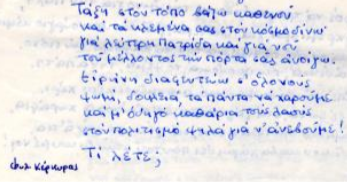 Τάξη στον τόπο βάζω καθενού
και τα κλεμένα σας στον κόσμο δίνω
για λεύτερη πατρίδα και για νου
του μέλλοντος την πόρτα σας ανοίγω.
Ειρήνη διαφεντεύω σ' όλους
ψωμί, δουλειά, τα πάντα να χαρούμε
και μ' οδηγό καθάρια τους λαούς
στον πολιτισμό ψηλά για ν' ανεβούμε!
Τί λέτε;
Κέρκυρας